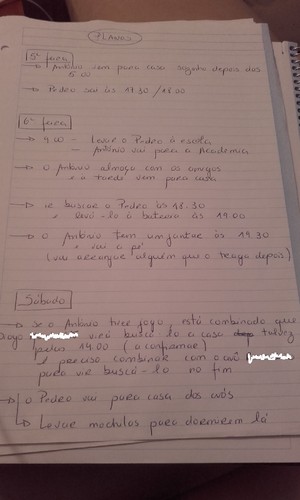 PLANOS
5ª feira
→ António vem para casa sozinho depois das
5.00
→ Pedro sai às 17.30 / 18.00
6ª feira
→ 9.00 – levar o Pedro à escola
– António vai para a Academia
→ O António almoça com os amigos
e à tarde vem para casa
→ ir buscar o Pedro às 18.30
e levá-lo à bateria às 19.00
→ O António tem um jantar às 19.30
e vai a pé
(vai arranjar alguém que o traga depois)
Sábado
→ Se o António tiver jogo, está combinado que
virá buscá-lo a casa talvez
pelas 14.00 (a confirmar)
é preciso combinar com o avô
para vir buscá-lo no fim
→ O Pedro vai para casa dos avós
→ Levar mochilas para dormirem lá